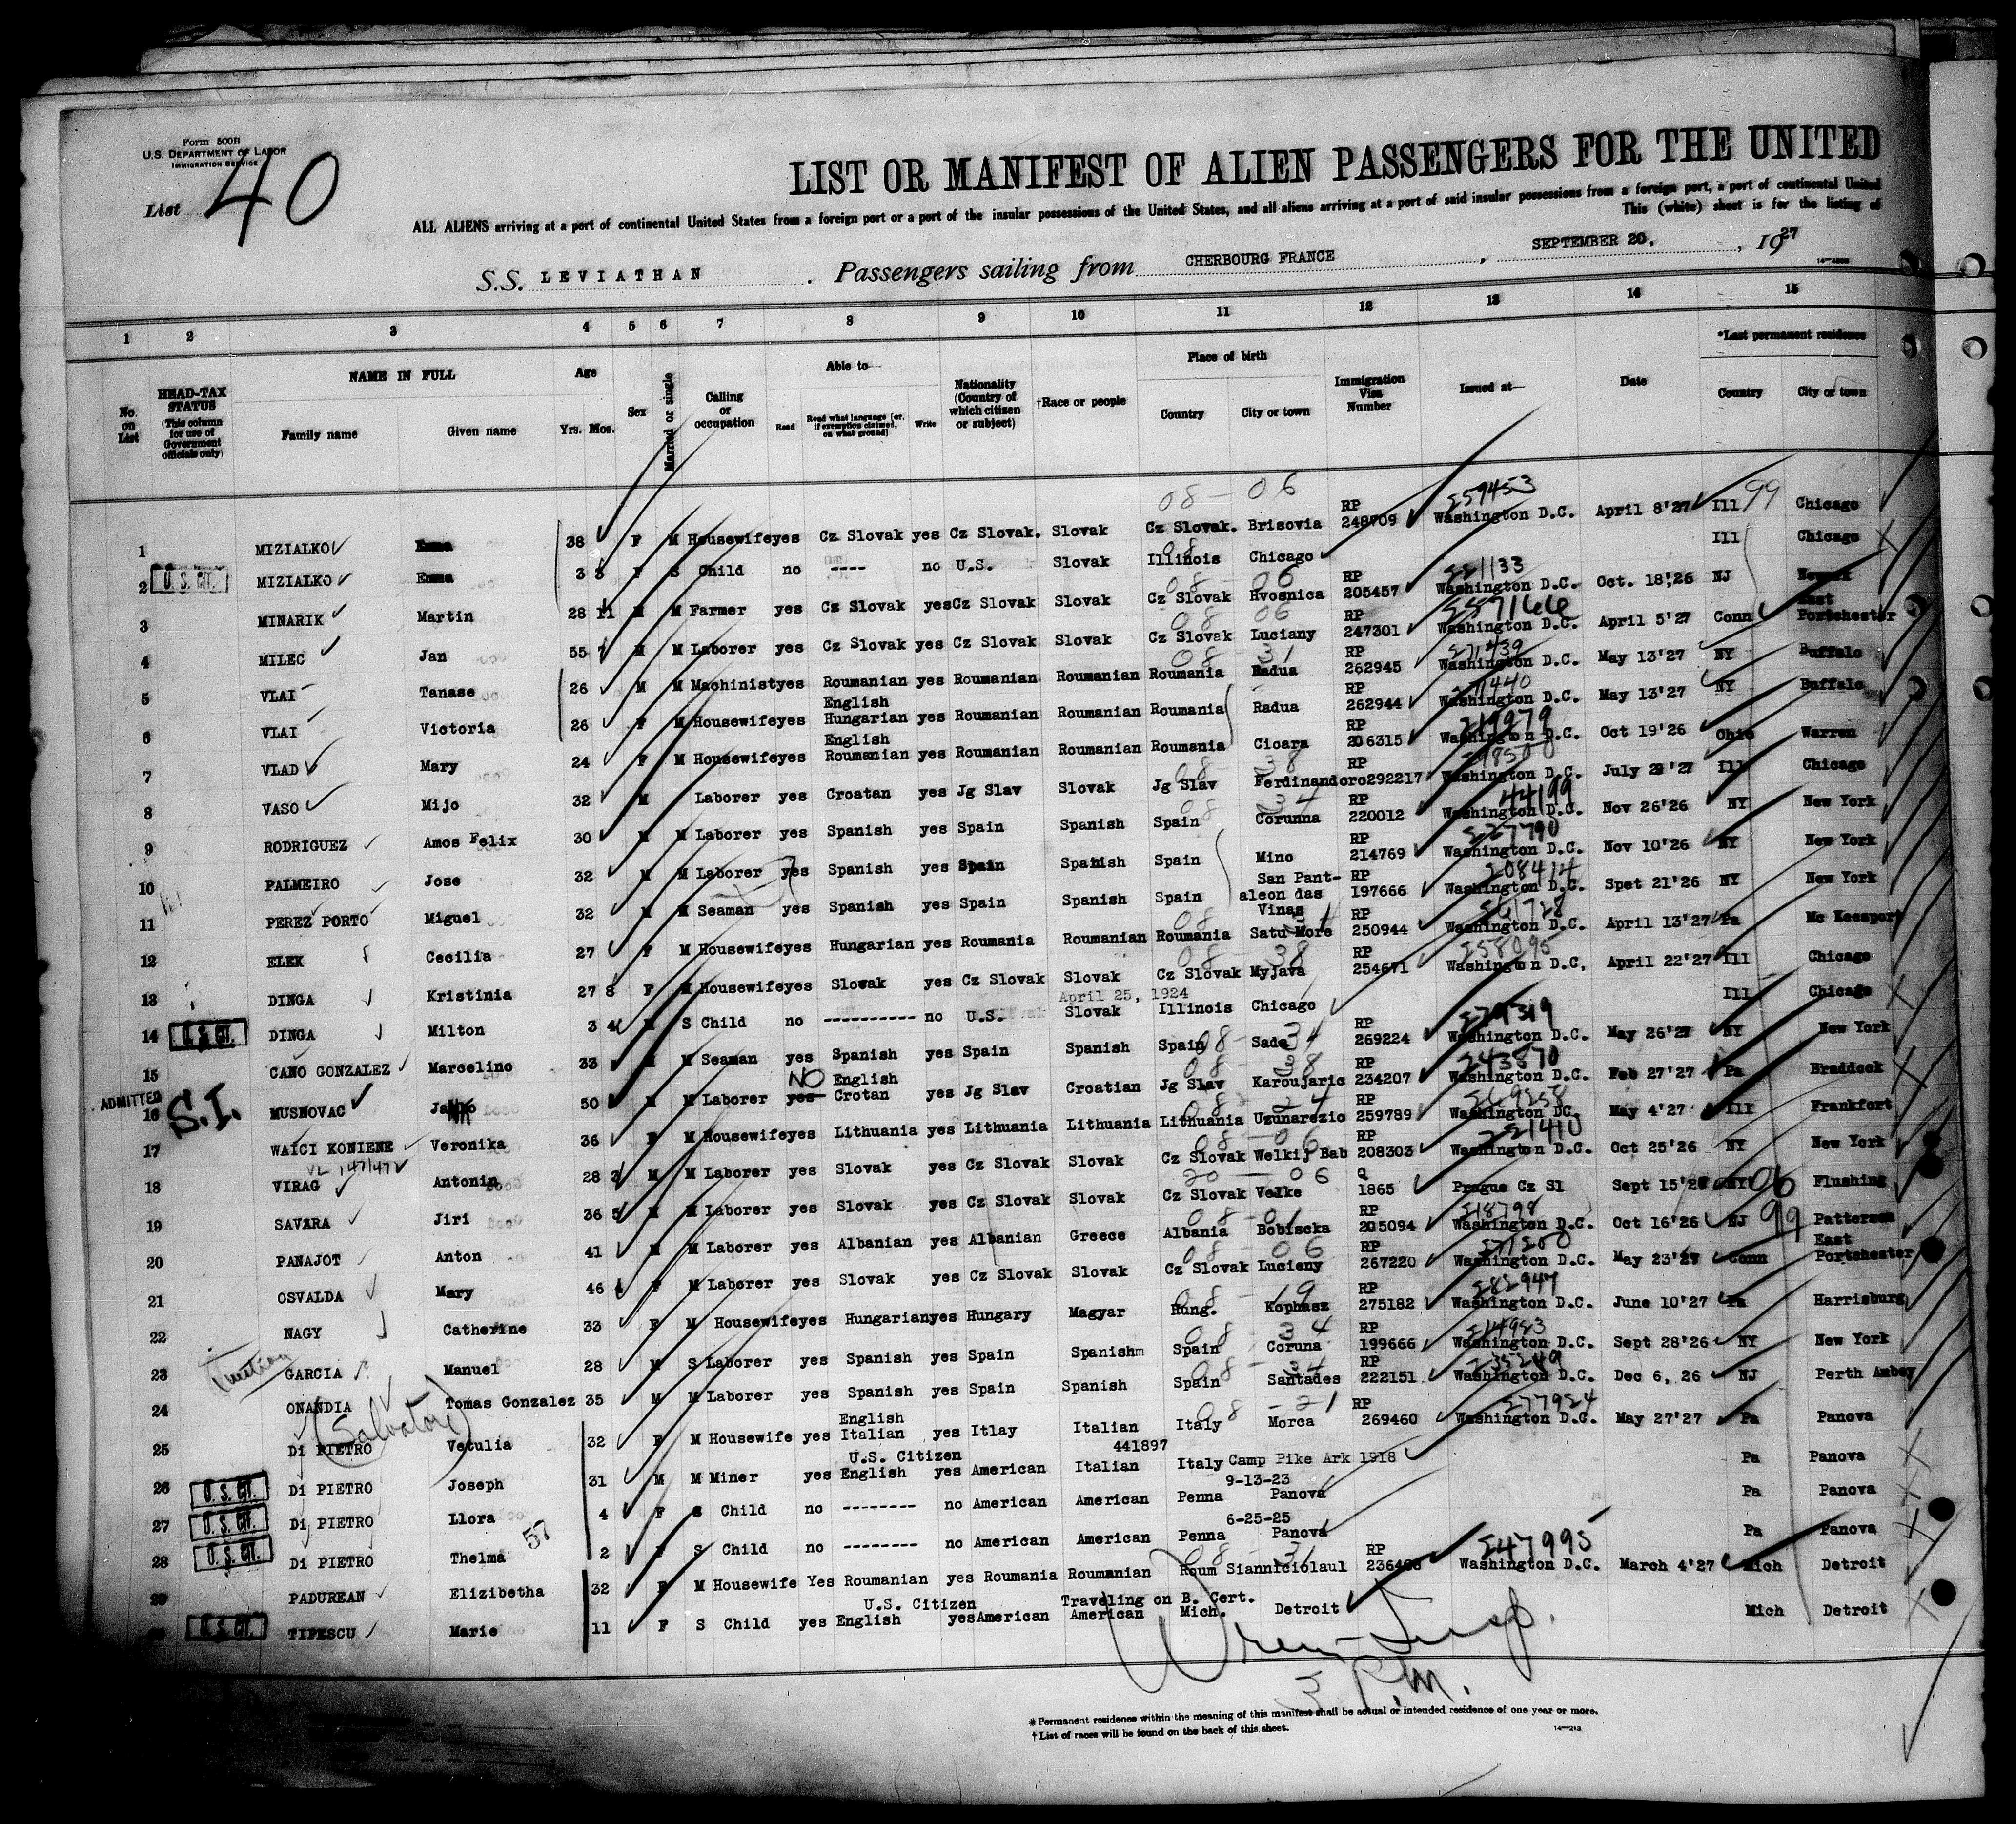 Form 500B
U.S. DEPARTMENT OF LABOR
IMMIGRATION SERVICE
List 40
LIST OR MANIFEST OF ALIEN PASSENGERS FOR THE UNITED
ALL ALIENS arriving at a port of continental United States from a foreign port or a port of the insular possessions of the United States, and all aliens arriving at a port of said insular possessions from a foreign port, a port of continental United
This (white) sheet is for the listing of
S.S. LEVIATHAN . Passengers sailing from CHERBOURG FRANCE , SEPTEMBER 20, , 1927
1 2 3 4 5 6 7 8 9 10 11 12 13 14 15
No. on List
HEAD-TAX STATUS (This column for use of Government officials only)
NAME IN FULL
Family name Given name
Age
Yrs. Mos.
Sex
Married or single
Calling or occupation
Able to—
Read Read what language [or, if exemption claimed, on what ground] Write
Nationality (Country of which citizen or subject)
†Race or people
Place of birth
Country City or town
Immigration Visa Number
Issued at—
Date
*Last permanent residence
Country City or town
1 MIZIALKO Emma 38 F M Housewife yes Cz Slovak yes Cz Slovak. Slovak Cz Slovak. Brisovia RP 248709 259453 Washington D.C. April 8'27 Ill 99 Chicago
2 U.S. CIT. MIZIALKO Emma 3 3 F S Child no ---- no U.S. Slovak Illinois Chicago Ill Chicago
3 MINARIK Martin 28 11 M M Farmer yes Cz Slovak yes Cz Slovak Slovak Cz Slovak Hvosnica RP 205457 Washington D.C. Oct. 18'26 NJ Newark
4 MILEC Jan 55 7 M M Laborer yes Cz Slovak yes Cz Slovak Slovak Cz Slovak Luciany RP 247301 Washington D.C. April 5'27 Conn East Portchester
5 VLAI Tanase 26 M M Machinist yes Roumanian English yes Roumanian Roumanian Roumania Radua RP 262945 271439 Washington D.C. May 13'27 NY Buffalo
6 VLAI Victoria 26 F M Housewife yes Hungarian English yes Roumanian Roumanian Roumania Radua RP 262944 Washington D.C. May 13'27 NY Buffalo
7 VLAD Mary 24 F M Housewife yes Roumanian yes Roumanian Roumanian Roumania Cicara RP 206315 219279 Washington D.C. Oct 19'26 Ohio Warren
8 VASO Mijo 32 M Laborer yes Croatan yes Jg Slav Slovak Jg Slav Ferdinandoro RP 292217 Washington D.C. July 29'27 Ill Chicago
9 RODRIGUEZ Amos Felix 30 M M Laborer yes Spanish yes Spain Spanish Spain Corunna RP 220012 44199 Washington D.C. Nov 26'26 NY New York
10 PALMEIRO Jose 32 M M Laborer yes Spanish yes Spain Spanish Spain Mino RP 214769 227790 Washington D.C. Nov 10'26 NY New York
11 PEREZ PORTO Miguel 32 M M Seaman yes Spanish yes Spain Spanish Spain San Pant-aleon das Vinas RP 197666 208414 Washington D.C. Spet 21'26 NY New York
12 ELEK Cecilia 27 F M Housewife yes Hungarian yes Roumania Roumanian Roumania Satu More RP 250944 261728 Washington D.C. April 13'27 Pa Mc Keesport
13 DINGA Kristinia 27 8 F M Housewife yes Slovak yes Cz Slovak Slovak Cz Slovak Myjava RP 254671 258095 Washington D.C. April 22'27 Ill Chicago
April 25, 1924
14 U.S. CIT. DINGA Milton 3 4 M S Child no ---------- no U.S. Slovak Illinois Chicago Ill Chicago
15 CANO GONZALEZ Marcelino 33 M M Seaman yes Spanish yes Spain Spanish Spain Sada RP 269224 279319 Washington D.C. May 26'27 NY New York
ADMITTED S.I.
16 MUSNOVAC 50 M M Laborer yes NO English Crotan yes Jg Slav Croatian Jg Slav Karoujaric RP 234207 243870 Washington D.C. Feb 27'27 Pa Braddock
17 WAICI KONIENE Veronika 36 F M Housewife yes Lithuania yes Lithuania Lithuania Lithuania Uzunarezio RP 259789 269258 Washington DC. May 4'27 Ill Frankfort
18 VIRAG Antonin 28 3 M M Laborer yes Slovak yes Cz Slovak Slovak Cz Slovak Welkij Bab RP 208303 221410 Washington D.C. Oct 25'26 NY New York
19 SAVARA Jiri 36 5 M M Laborer yes Slovak yes Cz Slovak Slovak Cz Slovak Velke Q 1865 Prague Cz Sl Sept 15'26 NY 06 Flushing
20 PANAJOT Anton 41 M M Laborer yes Albanian yes Albanian Greece Albania Bobiscka RP 205094 218798 Washington D.C. Oct 16'26 NJ 99 Patterson
21 OSVALDA Mary 46 F M Laborer yes Slovak yes Cz Slovak Slovak Cz Slovak Lucieny RP 267220 Washington D.C. May 23'27 Conn East Portchester
22 NAGY Catherine 33 F M Housewife yes Hungarian yes Hungary Magyar Hung. Kophasz RP 275182 282947 Washington D.C. June 10'27 Pa Harrisburg
23 GARCIA Manuel 28 M S Laborer yes Spanish yes Spain Spanishm Spain Coruna RP 199666 214983 Washington D.C. Sept 28'26 NY New York
24 ONANDIA Tomas Gonzalez 35 M M Laborer yes Spanish yes Spain Spanish Spain Santades RP 222151 235249 Washington D.C. Dec 6, 26 NJ Perth Amboy
(Salvatore)
25 Di PIETRO Vetulia 32 F M Housewife yes English Italian yes Itlay Italian Italy Morca RP 269460 277924 Washington D.C. May 27'27 Pa Panova
U.S. Citizen 441897
26 U.S. CIT. Di PIETRO Joseph 31 M M Miner yes English yes American Italian Italy Camp Pike Ark 1918 Pa Panova
9-13-23
27 U.S. CIT. Di PIETRO Llora 4 F S Child no -------- no American American Penna Panova Pa Panova
57 6-25-25
28 U.S. CIT. Di PIETRO Thelma 2 F S Child no -------- no American American Penna Panova Pa Panova
29 PADUREAN Elizibetha 32 F M Housewife Yes Roumanian yes Roumania Roumanian Roum Sianniciolaul RP 247995 Washington D.C. March 4'27 Mich Detroit
U.S. Citizen Traveling on B. Cert.
U.S. CIT. TIPESCU Marie 11 F S Child yes English yes American American Mich. Detroit Mich Detroit
3 P.M.
*Permanent residence within the meaning of this manifest shall be actual or intended residence of one year or more.
†List of races will be found on the back of this sheet.
14—213